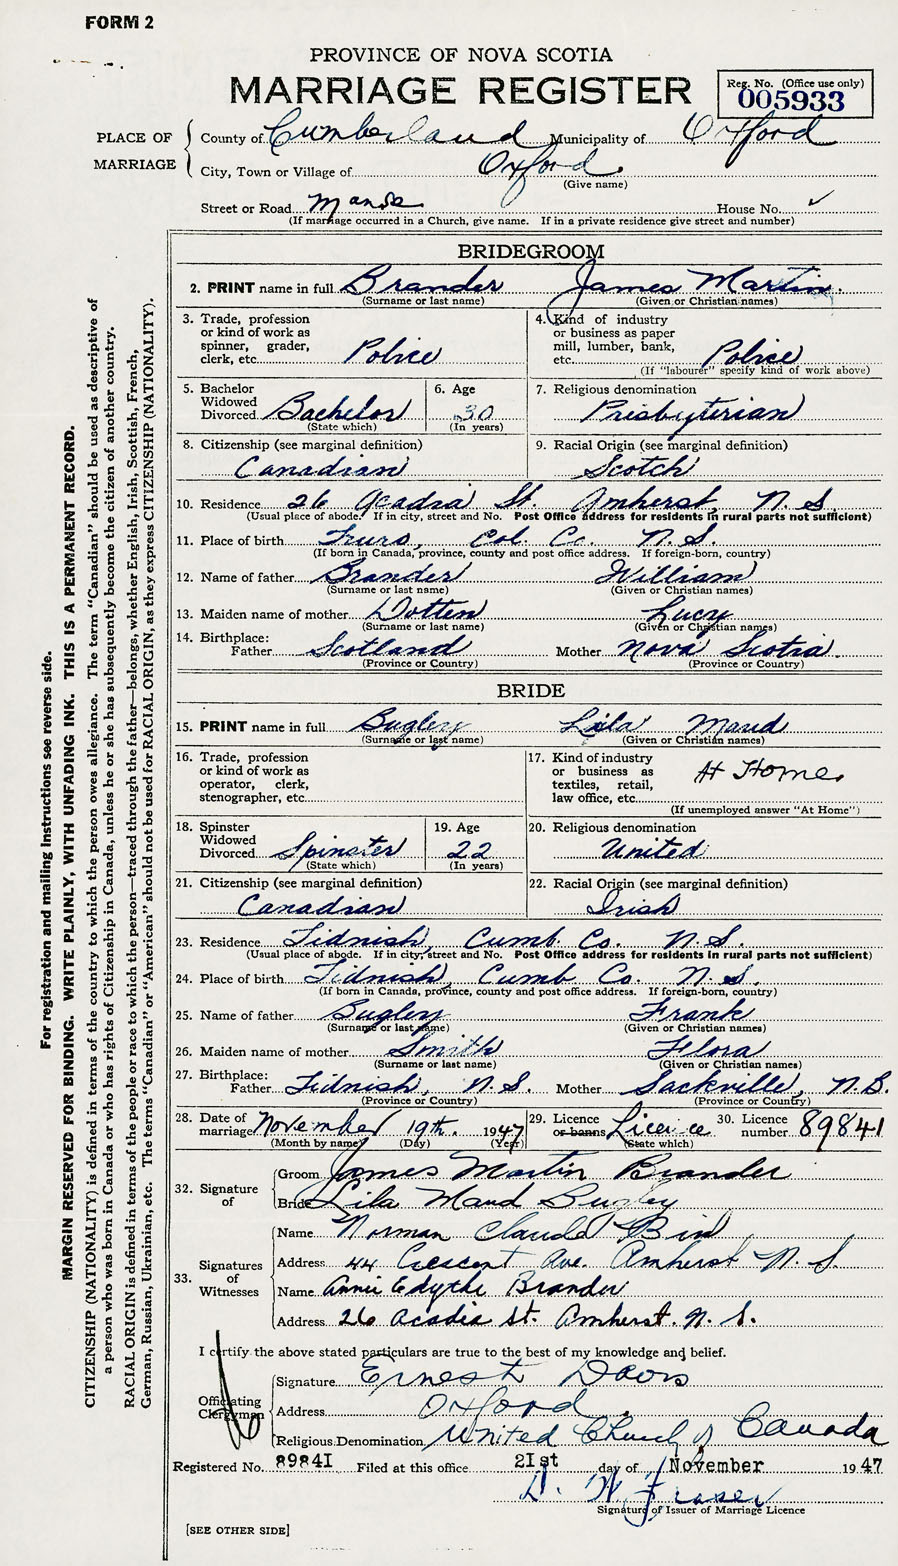 FORM 2
PROVINCE OF NOVA SCOTIA
MARRIAGE REGISTER
Reg. No. (Office use only)
005933
PLACE OF MARRIAGE
County of Cumberland Municipality of Oxford
City, Town or Village of Oxford
(Give name)
Street or Road Manse House No.
(If marriage occurred in a Church, give name. If in a private residence give street and number)
BRIDEGROOM
2. PRINT name in full Brander James Martin.
(Surname or last name) (Given or Christian names)
3. Trade, profession or kind of work as spinner, grader, clerk, etc. Police
4. Kind of industry or business as paper mill, lumber, bank, etc. Police
(If "labourer" specify kind of work above)
5. Bachelor Widowed Divorced Bachelor
(State which)
6. Age 30
(In years)
7. Religious denomination
Presbyterian
8. Citizenship (see marginal definition)
Canadian
9. Racial Origin (see marginal definition)
Scotch
10. Residence 26 Acadia St. Amherst, N. S
(Usual place of abode. If in city, street and No. Post Office address for residents in rural parts not sufficient)
11. Place of birth Truro, Col. Co. N. S.
(If born in Canada, province, county and post office address. If foreign-born, country)
12. Name of father Brander William
(Surname or last name) (Given or Christian names)
13. Maiden name of mother Dotten Lucy
(Surname or last name) (Given or Christian names)
14. Birthplace: Father Scotland Mother Nova Scotia.
(Province or Country) (Province or Country)
BRIDE
15. PRINT name in full Bugley Lila Maud
(Surname or last name) (Given or Christian names)
16. Trade, profession or kind of work as operator, clerk, stenographer, etc.
17. Kind of industry or business as textiles, retail, law office, etc. At Home.
(If unemployed answer "At Home")
18. Spinster Widowed Divorced Spinster
(State which)
19. Age 22
(In years)
20. Religious denomination
United
21. Citizenship (see marginal definition)
Canadian
22. Racial Origin (see marginal definition)
Irish
23. Residence Tidnish, Cumb. Co. N. S.
(Usual place of abode. If in city, street and No. Post Office address for residents in rural parts not sufficient)
24. Place of birth Tidnish, Cumb Co. N. S.
(If born in Canada, province, county and post office address. If foreign-born, country)
25. Name of father Bugley Frank
(Surname or last name) (Given or Christian names)
26. Maiden name of mother Smith Flora
(Surname or last name) (Given or Christian names)
27. Birthplace: Father Tidnish, N. S. Mother Sackville, N.B.
(Province or Country) (Province or Country)
28. Date of marriage November 19th. 1947
(Month by name) (Day) (Year)
29. Licence or banns Licence
(State which)
30. Licence number 89841
32. Signature of
Groom James Martin Brander
Bride Lila Maud Bugley
33. Signatures of Witnesses
Name Norman Claude
Address 44 Crescent Ave. Amherst N. S.
Name Annie Edythe Brander
Address 26 Acadia St. Amherst. N. S.
I certify the above stated particulars are true to the best of my knowledge and belief.
Officiating Clergyman
Signature Ernest Davis
Address Oxford.
Religious Denomination United Church of Canada
Registered No. 89841 Filed at this office 21st day of November 1947
D. W. Fraser
Signature of Issuer of Marriage Licence
[SEE OTHER SIDE]
For registration and mailing instructions see reverse side.
MARGIN RESERVED FOR BINDING. WRITE PLAINLY, WITH UNFADING INK. THIS IS A PERMANENT RECORD.
CITIZENSHIP (NATIONALITY) is defined in terms of the country to which the person owes allegiance. The term "Canadian" should be used as descriptive of
a person who was born in Canada or who has rights of Citizenship in Canada, unless he or she has subsequently become the citizen of another country.
RACIAL ORIGIN is defined in terms of the people or race to which the person—traced through the father—belongs, whether English, Irish, Scottish, French,
German, Russian, Ukrainian, etc. The terms "Canadian" or "American" should not be used for RACIAL ORIGIN, as they express CITIZENSHIP (NATIONALITY).